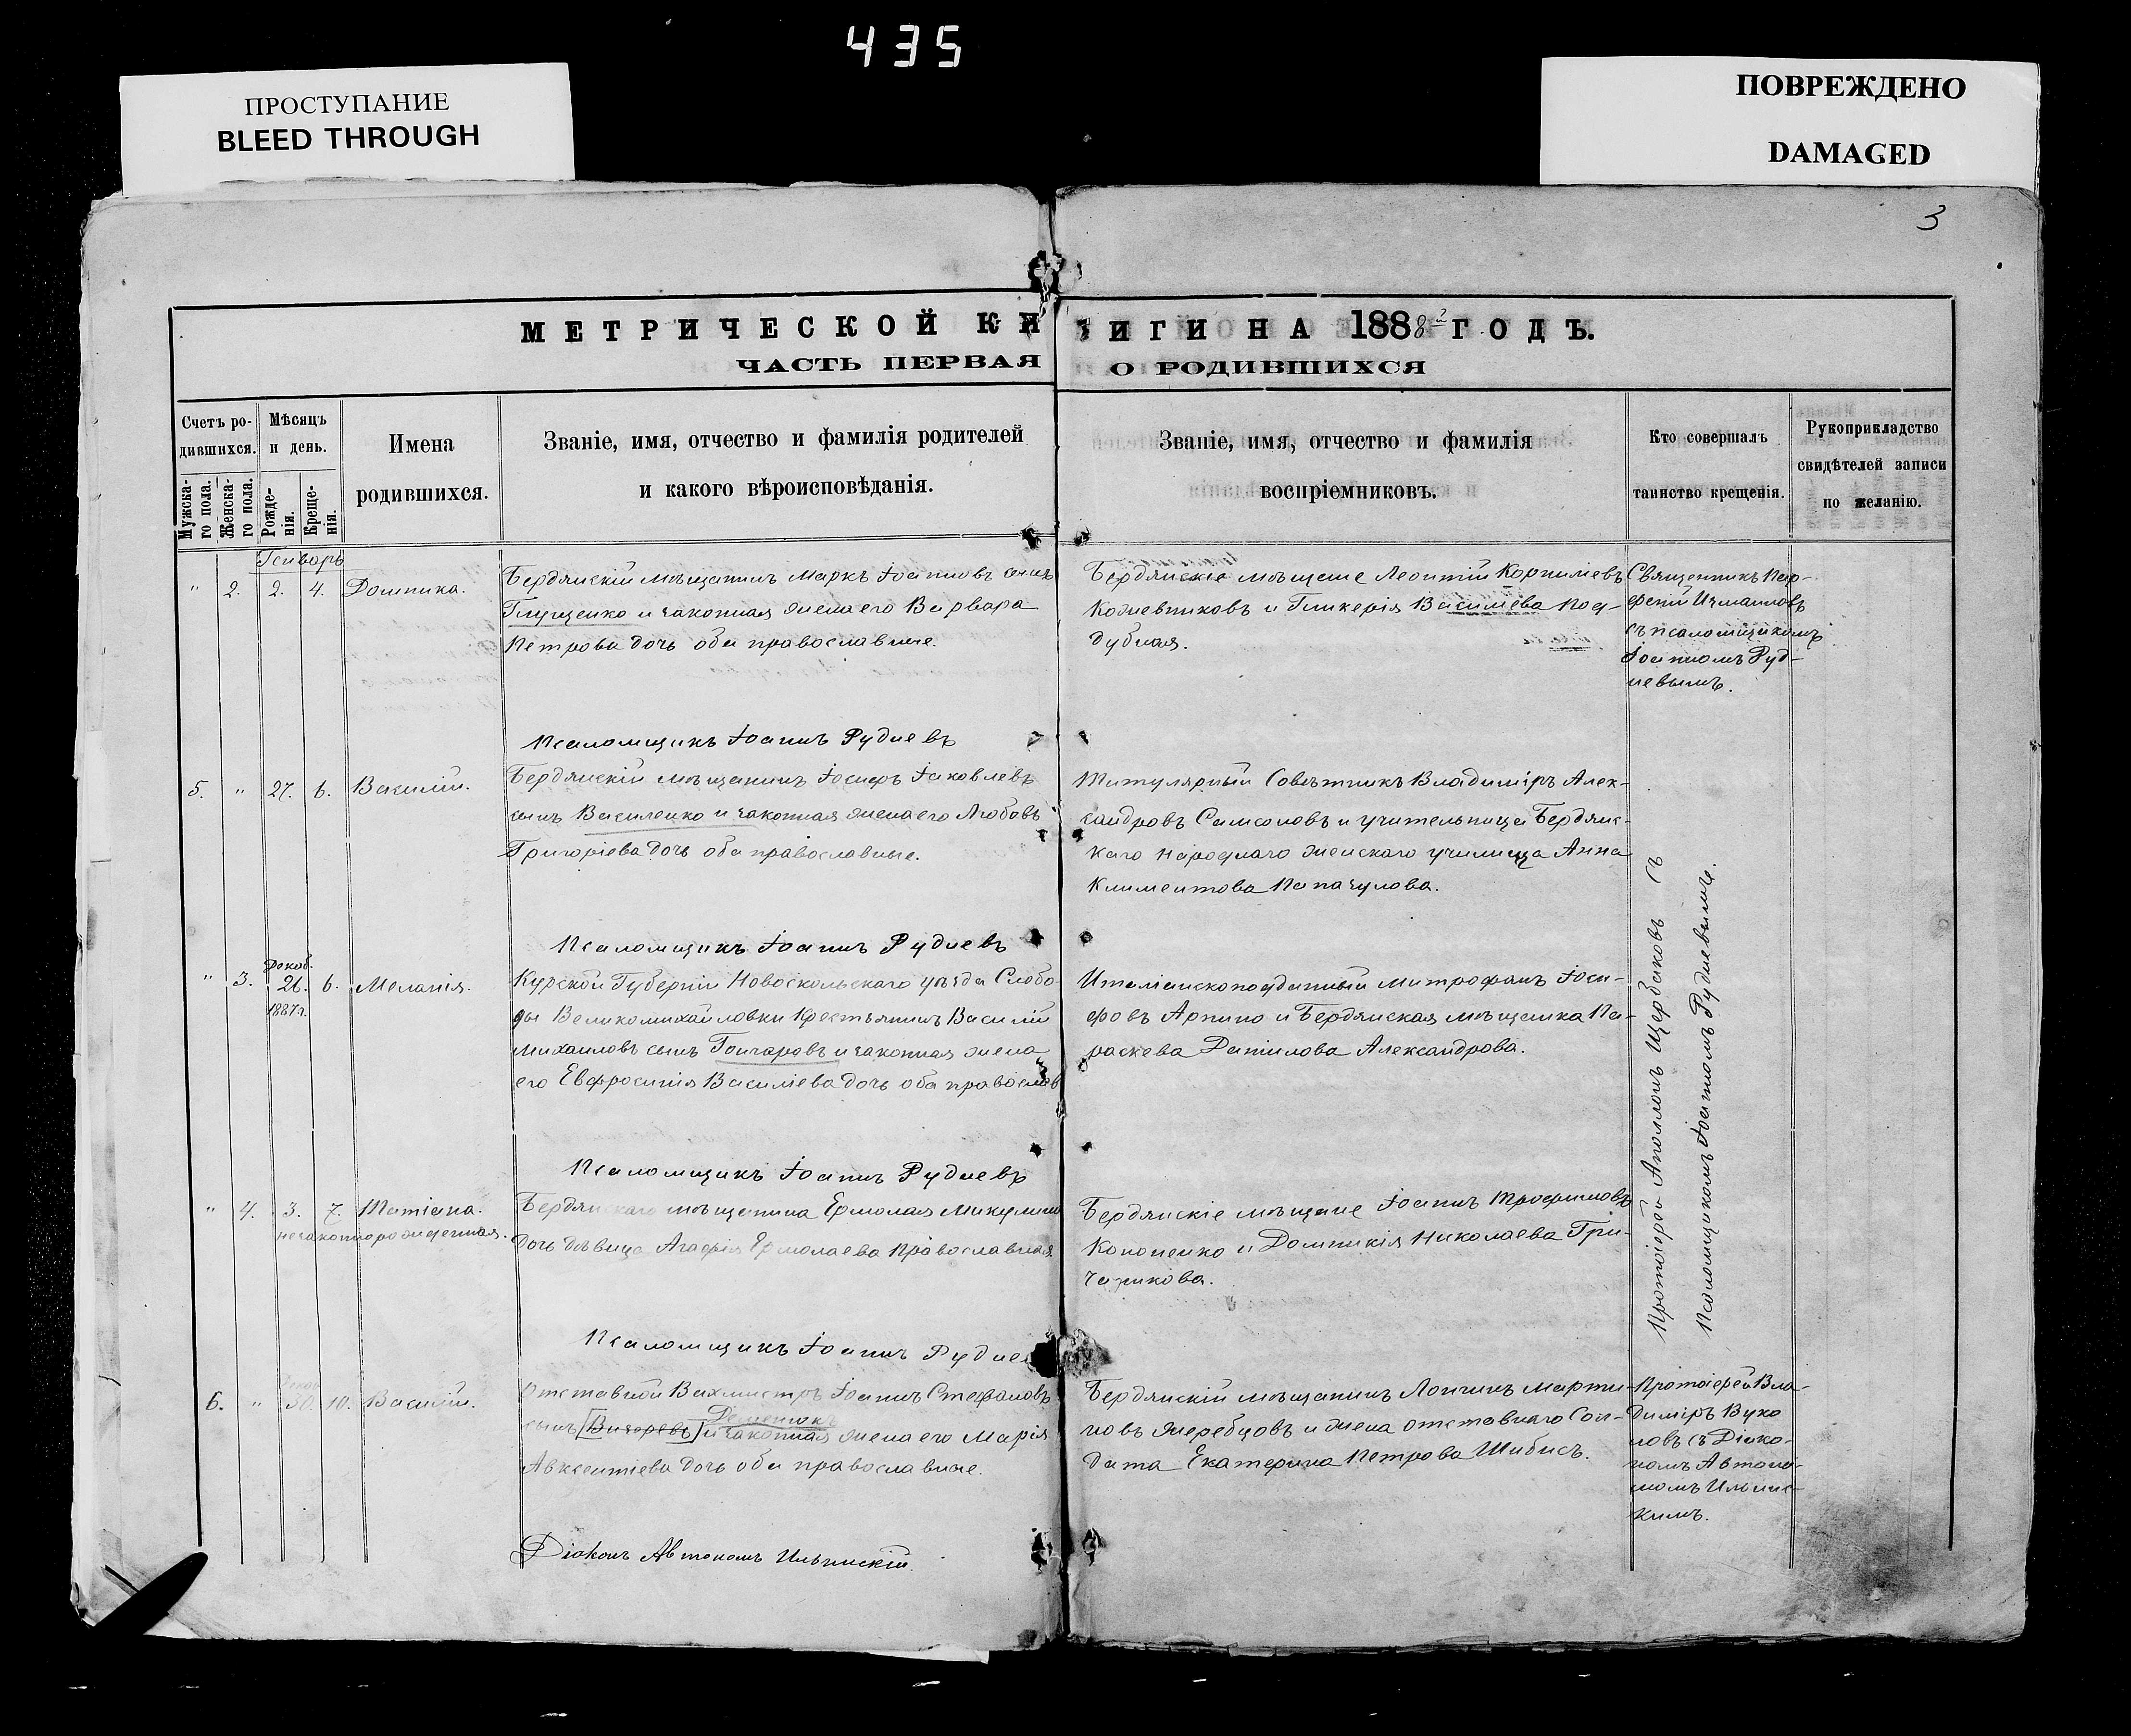 435
ПРОСТУПАНИЕ
BLEED THROUGH
ПОВРЕЖДЕНО
DAMAGED
3
МЕТРИЧЕСКОЙ КН ИГИ НА 1888 ГОДЪ.
ЧАСТЬ ПЕРВАЯ О РОДИВШИХСЯ
Счетъ ро-
дившихся.
Мужска-
го пола.
Женска-
го пола.
Мѣсяцъ
и день.
Рожде-
нія.
Креще-
нія.
Имена
родившихся.
Званіе, имя, отчество и фамилія родителей
и какого вѣроисповѣданія.
Званіе, имя, отчество и фамилія
воспріемниковъ.
Кто совершалъ
таинство крещенія.
Рукоприкладство
свидѣтелей записи
по желанію.
Генварь
" 2. 2. 4. Домника.
Бердянскій мѣщанинъ Маркъ Іоанновъ сынъ
Глущенко и законная жена его Варвара
Петрова дочь оба православные.
Бердянскіе мѣщане Леонтій Корниліевъ
Кожевниковъ и Гликерія Василіева Под-
дубная.
Священникъ
съ псаломщикомъ
Іоанномъ Руд-
невымъ.
Псаломщикъ Іоаннъ Рудневъ
5. " 27. 6. Василій.
Бердянскій мѣщанинъ Іосифъ Іаковлевъ
сынъ Василенко и законная жена его Любовь
Григоріева дочь оба православные.
Титулярный Совѣтникъ Владиміръ Алек-
сандровъ Самсоновъ и учительница Бердянс-
каго народнаго женскаго училища Анна
Климентова Папачулова.
Протоіерей Аполлонъ Щербаковъ съ
Псаломщикомъ Іоанномъ Рудневымъ.
Псаломщикъ Іоаннъ Рудневъ
" 3. Декаб. 26. 1887г. 6. Меланія.
Курской Губерніи Новоскольскаго уѣзда Слобо-
ды Великомихайловки Крестьянинъ Василій
Михаиловъ сынъ Гончаровъ и законная жена
его Евфросинія Василіева дочь оба православ
Италіанскоподданный Митрофанъ Іоси-
фовъ Арпино и Бердянская мѣщанка Па-
раскева Данилова Александрова.
Псаломщикъ Іоаннъ Рудневъ
" 4. 3. 7. Татіана.
незаконнорожденная.
Бердянскаго мѣщанина Ермолая Микулина
дочь дѣвица Агафія Ермолаева православная
Бердянскіе мѣщане Іоаннъ Трофимовъ
Кононенко и Домникія Николаева Гри-
Псаломщикъ Іоаннъ Руднев
6. " 30. 10. Василій.
Отставной Вахмистръ Іоаннъ Стефановъ
сынъ и законная жена его Марія
Авксентіева дочь оба православные.
Бердянскій мѣщанинъ Лонгинъ Марти-
новъ Жеребцовъ и жена отставнаго Сол-
дата Екатерина Петрова Шибисъ.
Протоіерей Вла-
диміръ Вуко
ловъ съ Діако-
номъ Автоно-
момъ Ильинс-
кимъ.
Діаконъ Автономъ Ильинскій.